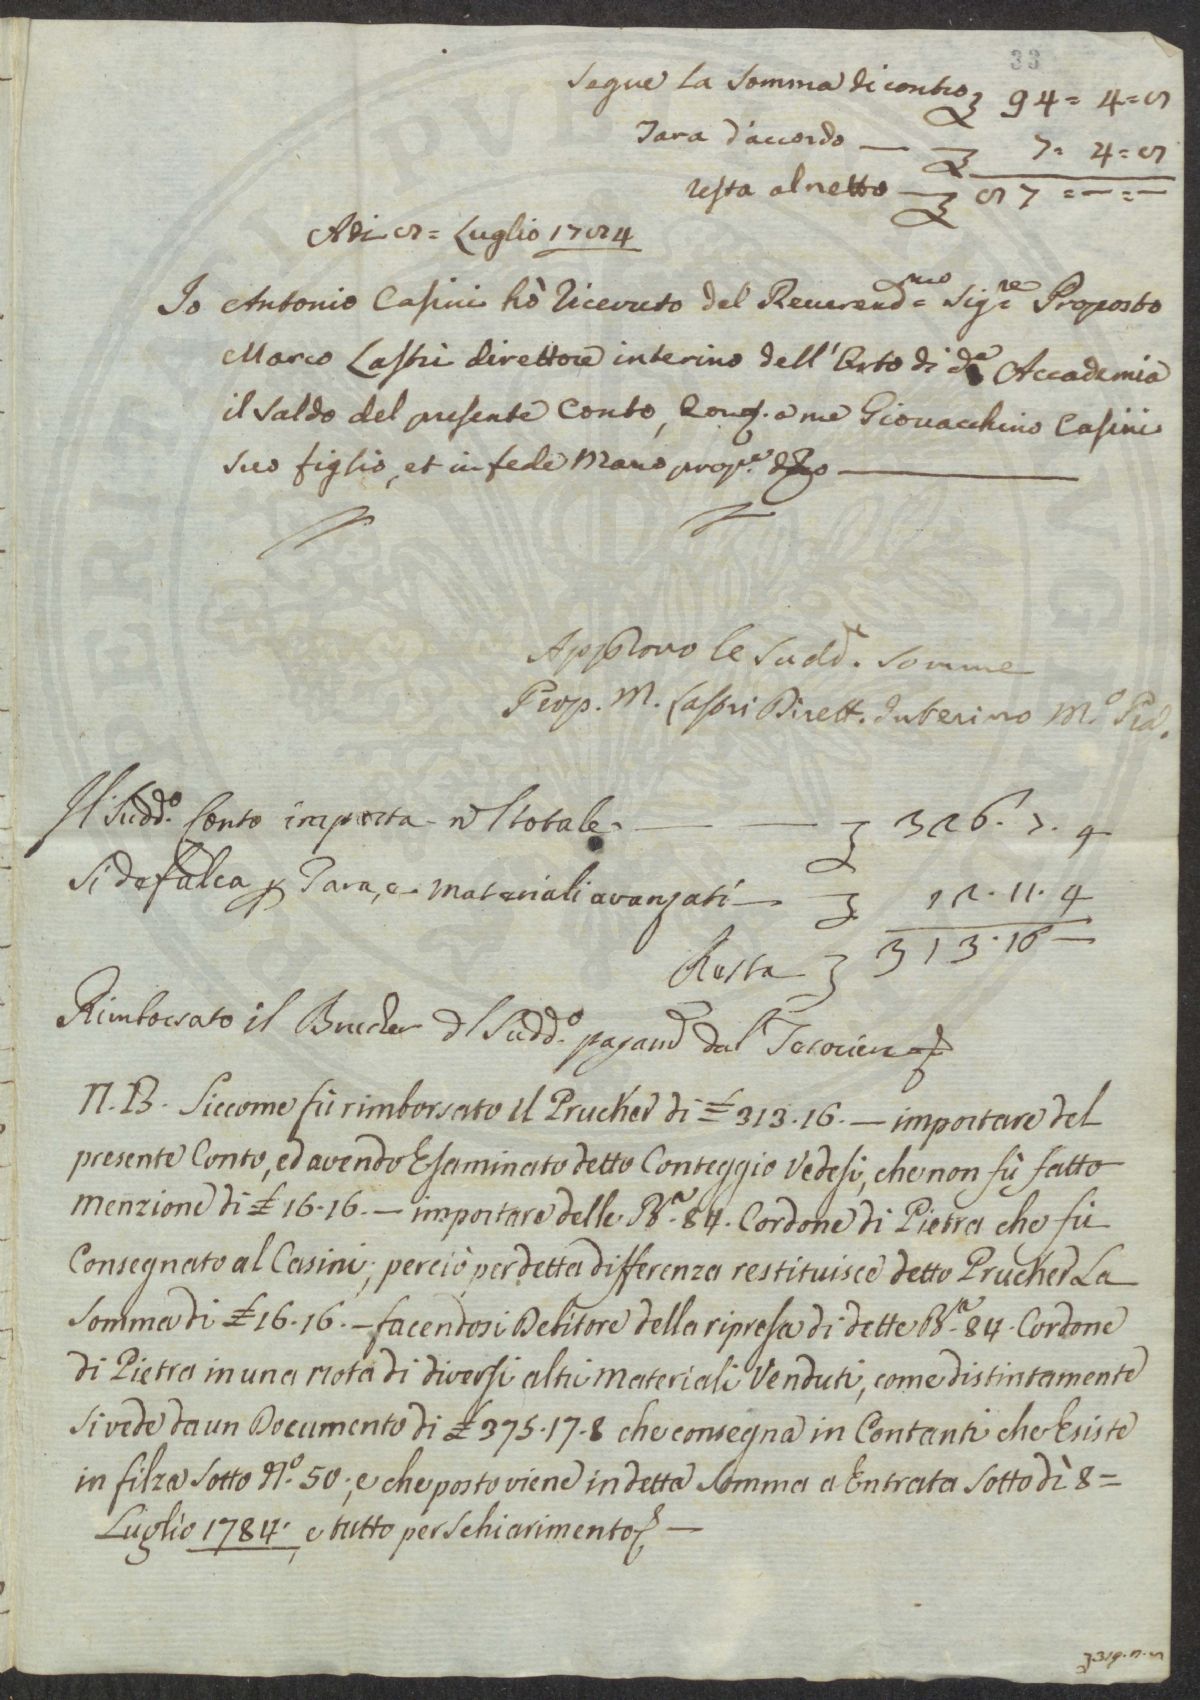 33
Segue La Somma di contro £ 94 = 4 = 8
Tara d'accordo — £ 7 = 4 = 8
resta al netto — £ 87 = — = —
Adi 8 = Luglio 1784
Io Antonio Casini hò ricevuto del Reverend.mo Sig.re Proposto
Marco Lastri direttore interino dell'Orto di d.a Accademia
il saldo del presente Conto, a me Giovacchino Casini
suo figlio, et in fede mano prop.a d.o —
Approvo le Sudd.e somme
Prop. M. Lastri Dirett. Interino M.o Pra.
Il Sudd.o Conto importa nel totale — £ 326. 7. 4
Si defalca p Tara, e materiali avanzati — £ 12. 11. 4
Resta £ 313. 16 —
Rimborsato il Brucher del Sudd.o pagam.to dal Tesoriere
N. B. Siccome fù rimborsato il Prucher di £ 313. 16. — importare del
presente Conto, ed avendo Esaminato detto Conteggio Vedesi, che non fù fatto
menzione di £ 16. 16. — importare delle B.a 84. Cordone di Pietra che fù
Consegnato al Casini; perciò per detta differenza restituisce detto Prucher La
Somma di £ 16. 16. — facendosi Debitore della ripresa di dette B.a 84. Cordone
di Pietra in una Nota di diversi altri Materiali Venduti, come distintamente
si vede da un Documento di £ 375. 17. 8 che consegna in Contanti che Esiste
in filza Sotto N.o 50; e che posto viene in detta Somma a Entrata Sotto dì 8 =
Luglio 1784. e tutto per Schiarimento —